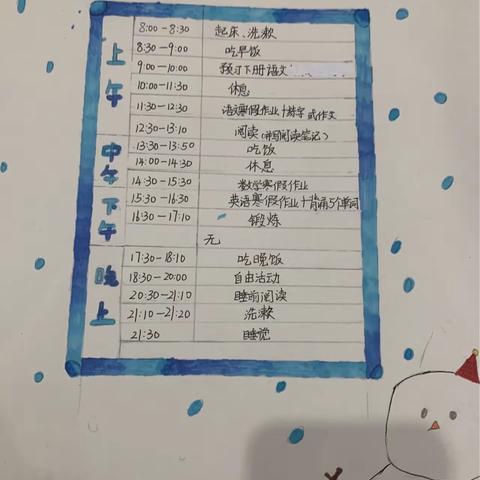 上午
8:00-8:30 起床、洗漱
8:30-9:00 吃早饭
9:00-10:00 预习下册语文
10:00-11:30 休息
11:30-12:30 语文寒假作业+练字或作文
12:30-13:10 阅读(并写阅读笔记)
中午
13:30-13:50 吃饭
14:00-14:30 休息
下午
14:30-15:30 数学寒假作业
15:30-16:30 英语寒假作业+背诵5个单词
16:30-17:10 锻炼
无
晚上
17:30-18:10 吃晚饭
18:30-20:00 自由活动
20:30-21:10 睡前阅读
21:10-21:20 洗漱
21:30 睡觉